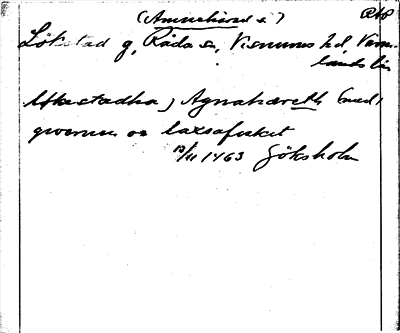 (Amnehärad s.) RAP
Lökstad g, Råda sn, Visnums hd, Värm-
lands län
Ukastadha, Agnahæreth (med
qwornen oc laxsafisket
13/11 1463 Göksholm